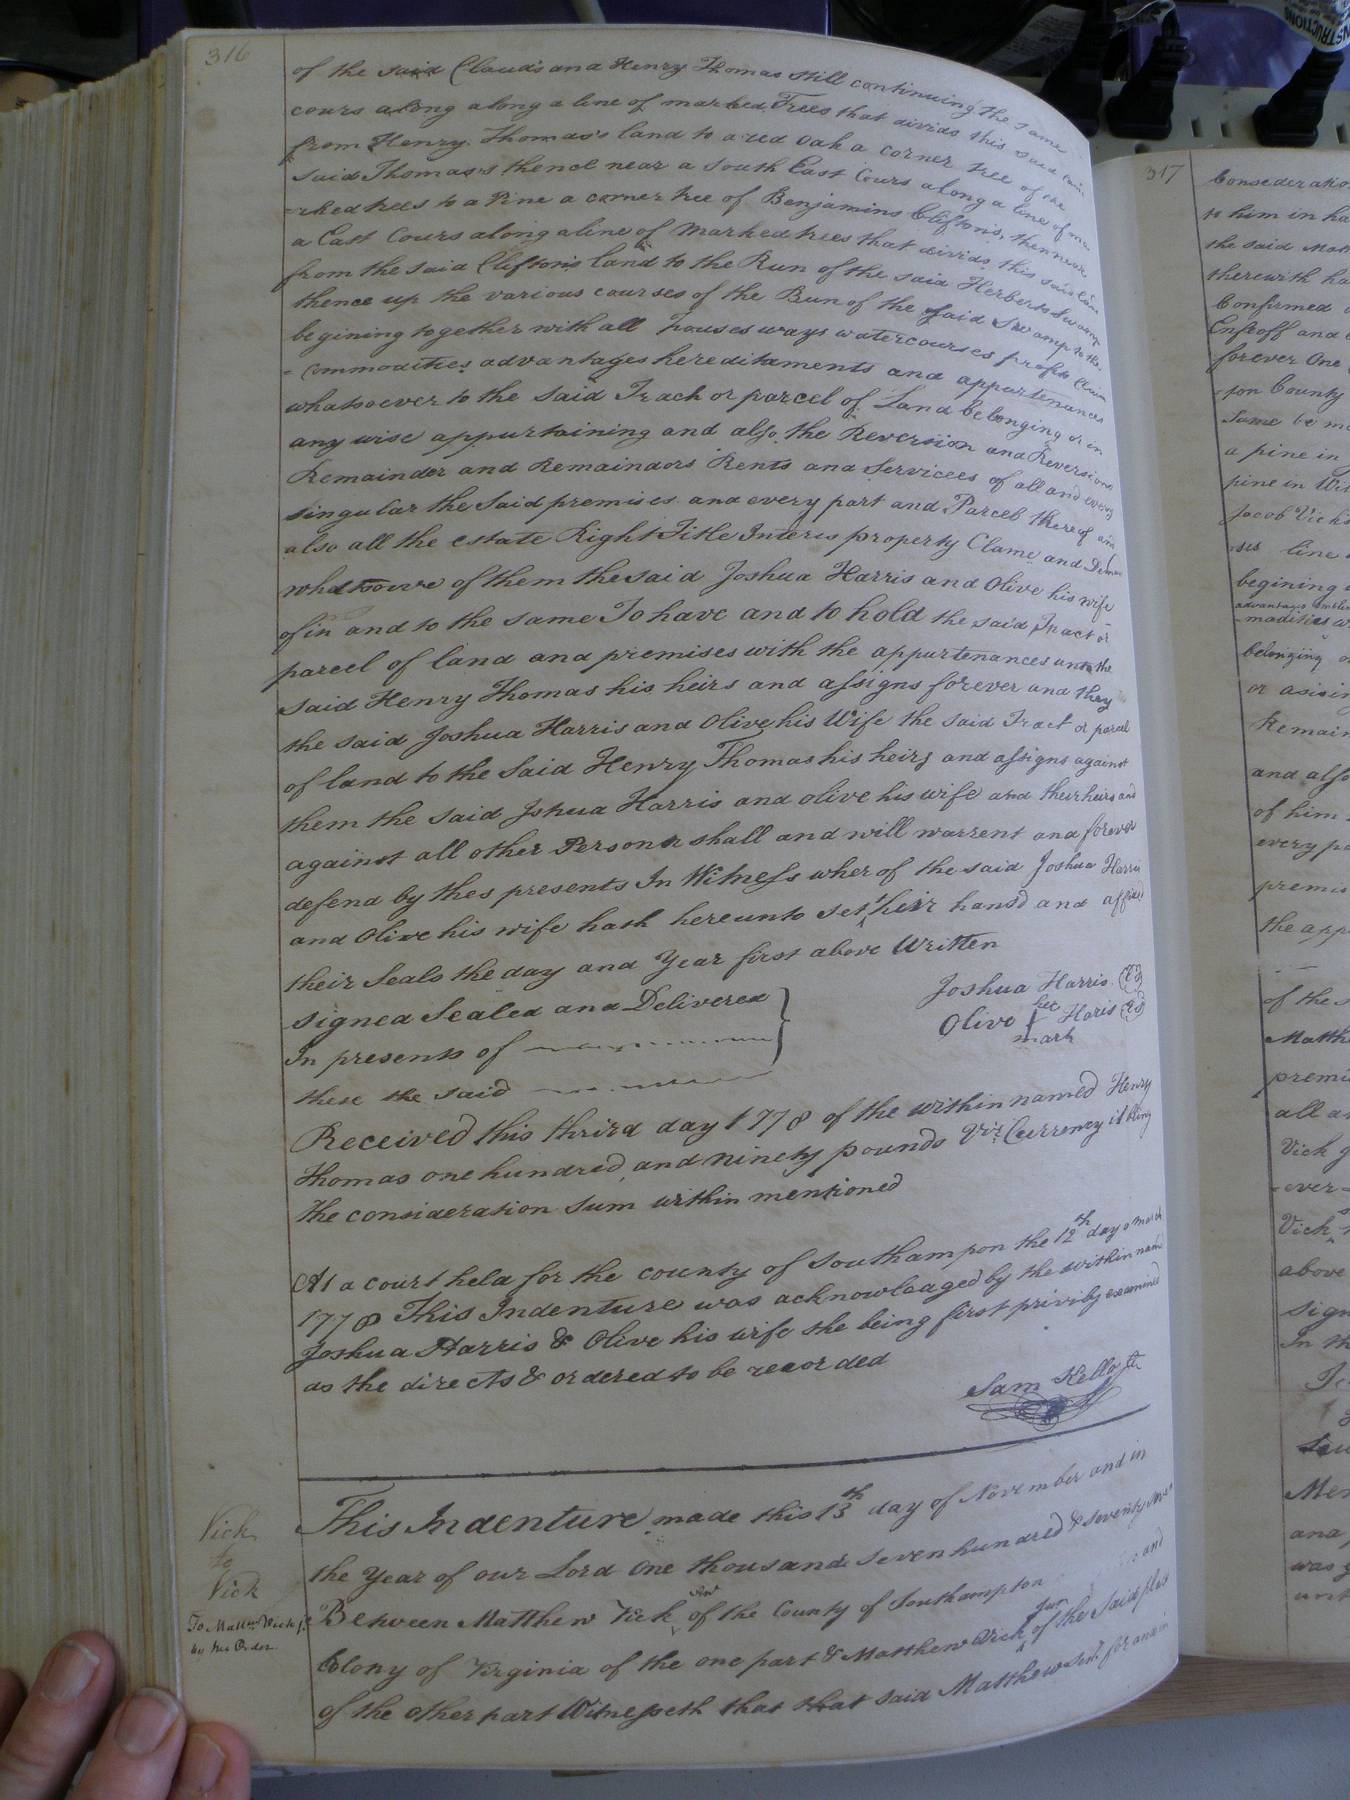 316
of the said Clauds and Henry Thomas still continuing the same
cours along along a line of marked Trees that divids this said
from Henry Thomas's land to a red Oak a corner tree of the
said Thomas's thence near a South East Cours along a line of ma
=rked trees to a Pine a corner tree of Benjamins Clifton's, then near
a East Cours along a line of marked trees that divids this said Lan
from the said Clifton's land to the Run of the said Herberts Swamp
thence up the various courses of the Run of the said Swamp to the
begining together with all houses ways watercourses profits
= commodities advantages hereditaments and appurtenances
whatsoever to the said Trach or parcel of Land belonging or in
any wise appurtaining and also the Reversion and Reversions
Remainder and Remaindors Rents and Servicees of all and every
singular the Said premises and every part and Parcel thereof and
also all the estate Right Title Interis property Clame and Deman
whatsoure of them the said Joshua Harris and Olive his wife
of in and to the same To have and to hold the said Tract or
parcel of land and premises with the appurtenances unto the
said Henry Thomas his heirs and assigns forever and they
the said Joshua Harris and Olive his Wife the said Tract or parcel
of land to the Said Henry Thomas his heirs and assigns against
them the said Jshua Harris and olive his wife and their heirs and
against all other Persons shall and will warrent and forever
defend by thes presents In Witness wher of the said Joshua Harris
and Olive his wife hath hereunto set their hansd and affixed
their Seals the day and Year first above Written
Signed Sealed and Delivered
In presents of
these the said
Joshua Harris
Olive her Haris
mark
Received this thrird day 1778 of the within named Henry
Thomas one hundred and ninety pounds Vir. Currency it being
the consideration Sum within mentioned
At a court held for the county of Southampon the 12th day o march
1778 This Indenture was acknowledged by the within name
Joshua Harris & Olive his wife she being first privily examined
as the directs & ordered to be recorded
Sam Kello
Vick
to
Vick
To Matt Vick
by his Order
This Indenture made this 13th day of November and in
the Year of our Lord One thousand Seven hundred & seventy
Between Matthew Vick of the County of Southampton and
Colony of Virginia of the one part & Matthew Vick Jun of the Said place
of the other part Witnesseth that that said Matthew Sen. for and in
317
Consederation
to him in ha
the said Mat
therewith ha
Confirmed
Enfeoff and
forever One
-ton County
Same be mo
a pine in
pine in Wil
Jacob Vicks
line
begining
advantages
-madities
belonging
or
Remain
and also
of him
every pa
premis
the app
of the
Matth
premi
all a
Vick
-ever-
Vick
above
Sign
In th
and
was